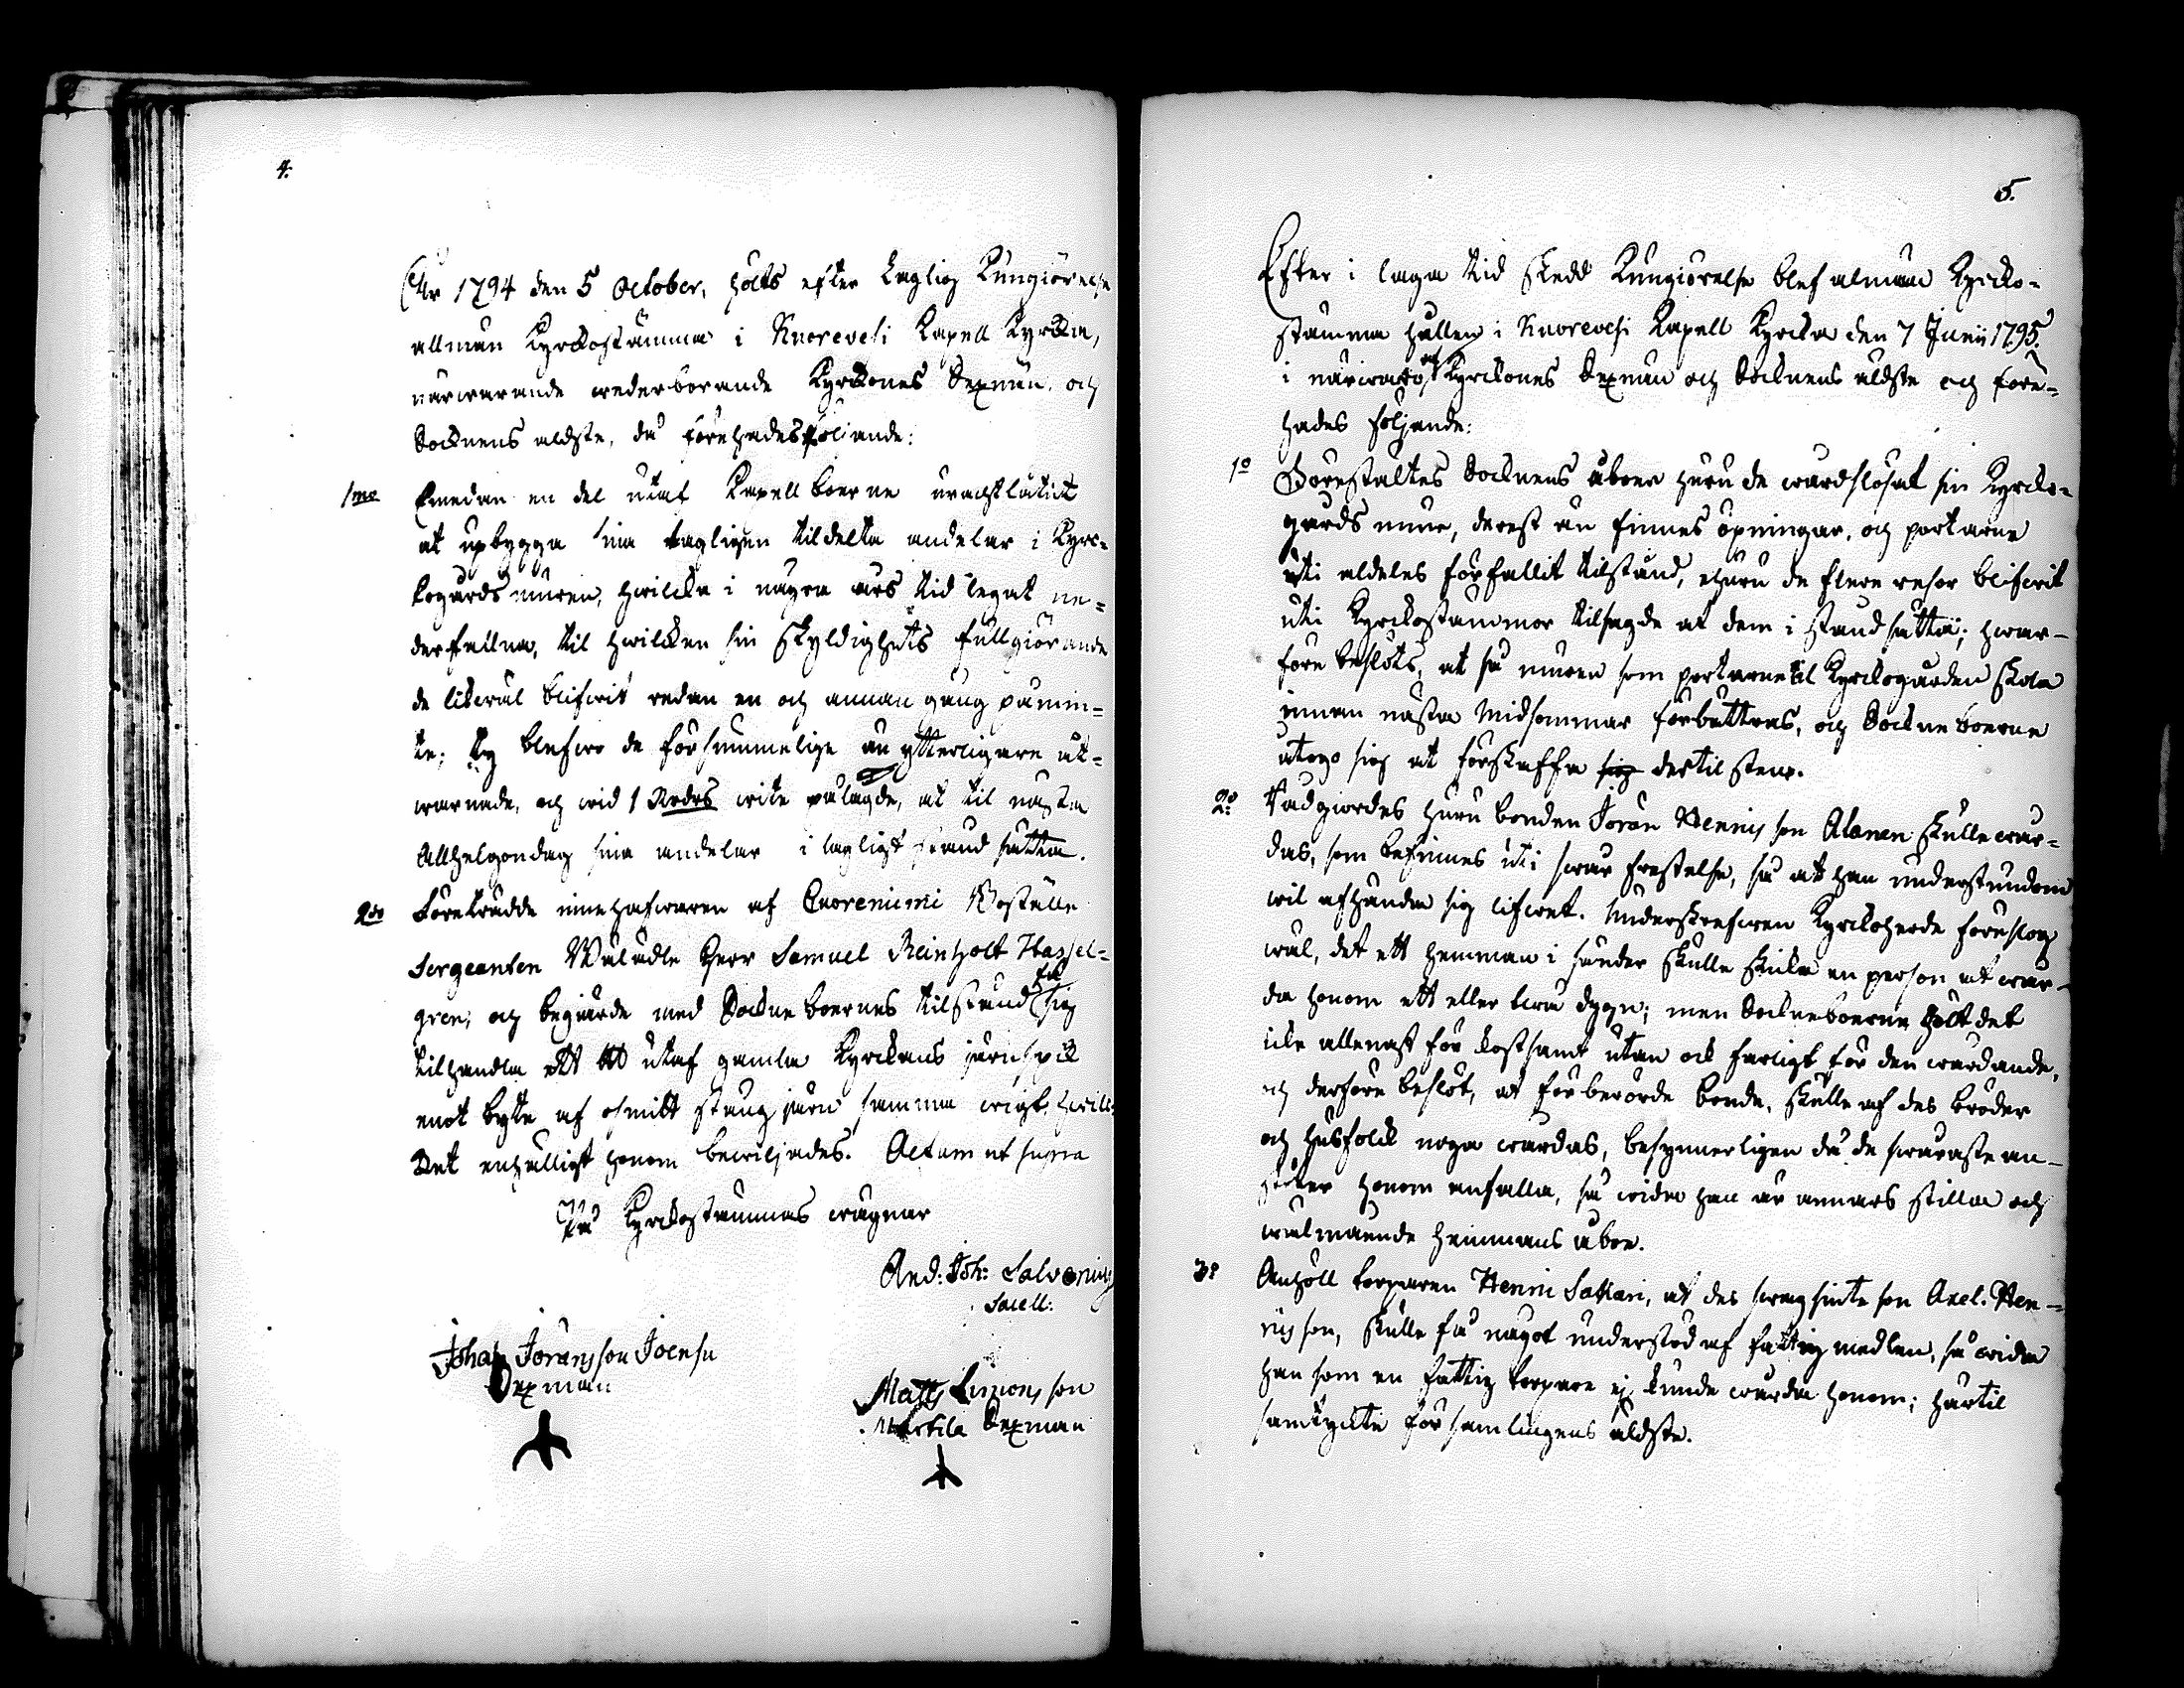 4.
År 1794 den 5 October, holts efter Laglig Kungiörelse
allmän Kyrckostämma i Kuorevesi Kapell Kyrcka,
närwarande wederbörande Kyrckones Sexmän, och
Socknens äldste, då förehades följande:
1mo Emedan en del utaf Kapellboerne uraktlåtit
at upbygga sina lagligen tildelta andelar i Kyrc-
kogårds muren, hwilcka i några års tid legat ne-
derfallna, til hwilcken sin skyldighets fullgiörande
de likwäl blifwit redan en och annan gång påmin-
te; Ty blefwo de försummelige än ytterligare åt-
warnade, och wid 1 Rdrs wite pålagde, at til nästa
Allhelgondag sina andelar i lagligt stånd sättia.
2do Företrädde innehafwaren af Kuoreniemi Boställe
Sergeanten Wälädle Herr Samuel Reinholt Hassel-
gren; och begiärde med Sockneboernes tilstånd få sig
tilhandla ett utaf gamla Kyrckans järnspik
emot byte af osmitt stångjärn, samma wigt, hwill-
ket enhälligt honom bewiljades. Actum ut supra
På Kyrckostämmas wägnar
And: Joh: Salvenius
Sacell:
Johan Jöransson Joensu
Sexman
Matts Simonsson
Mattila Sexman
5.
Efter i laga tid skedd Kungiörelse blef almän Kyrcko-
stämma hållen i Kuorevesi Kapell Kyrcka den 7 Junii 1795.
i närwaro af Kyrckones Sexmän och Socknens äldste och före-
hades följande:
1o Föreställtes Socknens åboer huru de wårdslösat sin Kyrcko-
gårds mur, derest än finnes öpningar, och portarne
uti aldeles förfallit tilstånd, ehuru de flere resor blifwit
uti Kyrckostämmor tilsagde at dem i stånd sättia; hwar-
före beslöts, at så muren som portarne til Kyrckogården skola
innan nästa Midsommar förbättras, och Sockneboerne
åtogo sig at förskaffa sig dertil stenar.
2o Rådgiordes huru bonden Jöran Hennrsson Alanen skulle wår-
das, som befinnes uti swår frestelse, så at han understundom
wil afhända sig lifwet. Underskrefwen Kyrckoherde föreslog
wäl, det ett hemman i sänder skulle skicka en person at wår-
da honom ett eller twå dygn; men Sockneboerne hölt det
icke allenast för kostsamt utan ock farligt för den wårdande,
och derföre beslöt, at förberörde bonde, skulle af des bröder
och husfolck noga wårdas, besynnerligen då de swåraste an-
stöter honom anfalla, så wida han är annars stilla och
wälmående hemmans åboe.
3o Anhöll torparen Henric Sakari, at des swagsinte son Axel Hen-
ricsson, skulle få något understöd af fattig medlen, så wida
han som en fattig torpare ej kunde wårda honom; härtil
samtyckte församlingens äldste.